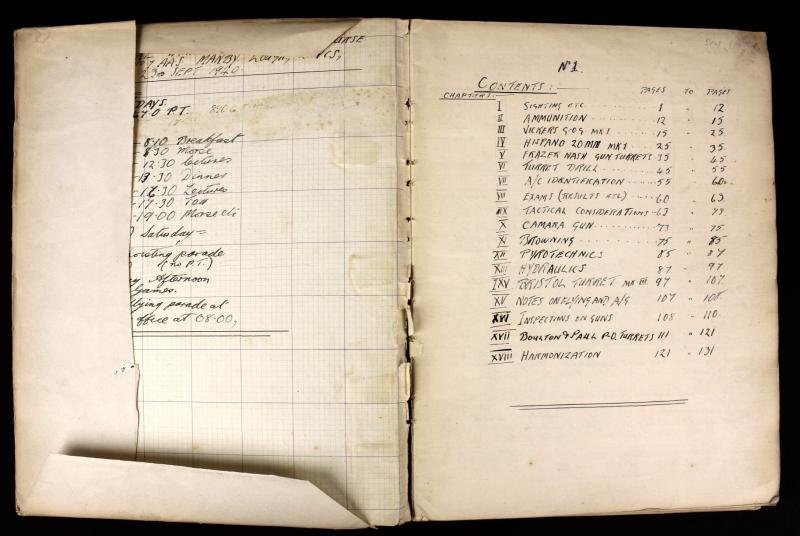 RSE
A.A.S. MANBY
23RD SEPT 1940
DAYS.
P.T.
- 8.10 Breakfast
8.30 Morse
- 12.30 Lectures
- 13.30 Dinner
- 17.30 Lectures
- 17.30 Tea
- 19.00 Morse etc
Saturday =
oisting parade
(no P.T.)
Afternoon
Games.
lying parade at
office at 08.00,
No 1.
CONTENTS:-
CHAPTERS:- PAGES TO PAGES
I SIGHTING ETC 1 - 12
II AMMUNITION 12 " 15
III VICKERS G.O.G. MK I 15 - 25
IV HISPANO 20 MM MK I 25 " 35
V FRAZER NASH GUN TURRETS 35 " 45
VI TURRET DRILL 45 " 55
VII A/C IDENTIFICATION 55 " 60
VIII EXAMS (RESULTS ETC) 60 " 63
IIX TACTICAL CONSIDERATIONS - 63 " 73
X CAMARA GUN 73 " 75
XI BROWNING 75 " 85
XII PYROTECHNICS 85 " 87
XIII HYDRAULICS 87 - 97
IXV BRISTOL TURRET MK III 97 " 107
XV NOTES ON FLYING AND A/G 107 " 108
XVI INSPECTIONS ON GUNS 108 - 110
XVII BOULTON & PAUL P.D. TURRETS 111 " 121
XVIII HARMONIZATION 121 - 131